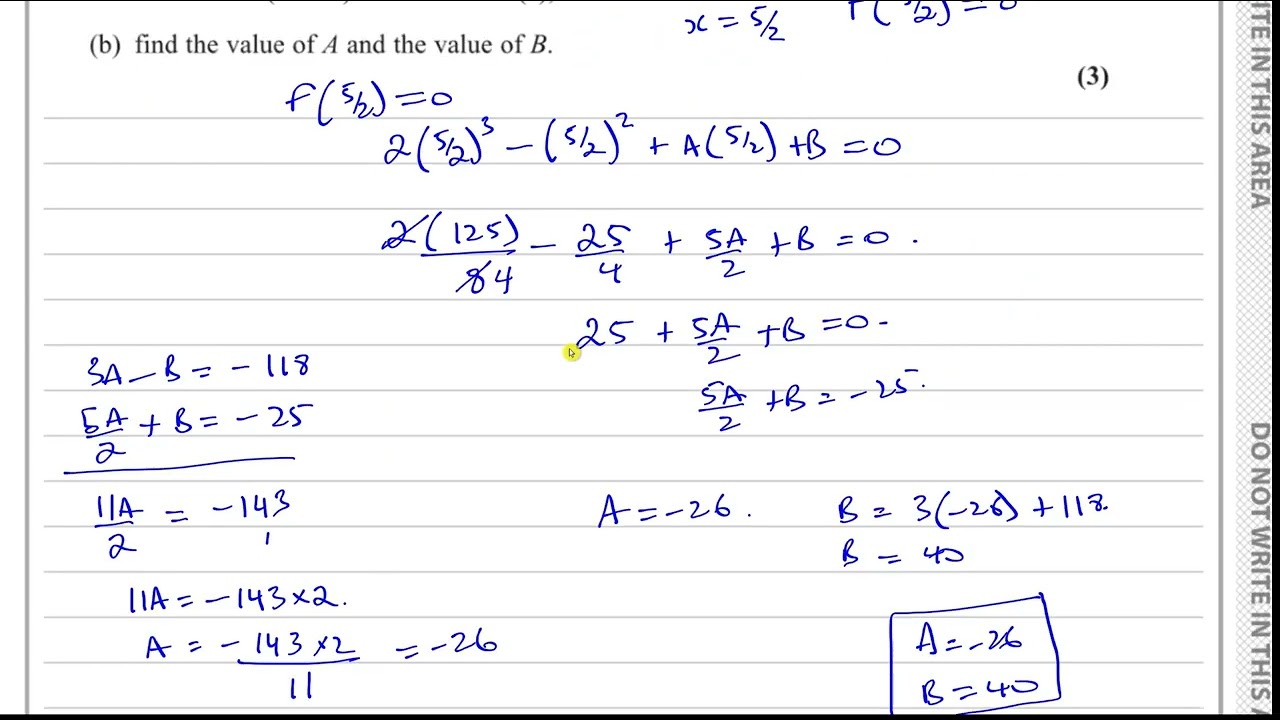 x = 5/2 f(5/2) = 0
(b) find the value of A and the value of B.
(3)
f(5/2) = 0
2(5/2)³ − (5/2)² + A(5/2) + B = 0
2(125)/84 − 25/4 + 5A/2 + B = 0 .
25 + 5A/2 + B = 0 -
5A/2 + B = −25 .
3A − B = − 118
5A/2 + B = − 25
11A/2 = − 143
11A = − 143 × 2.
A = − 143 × 2 / 11 = −26
A = −26 .
B = 3(−26) + 118.
B = 40
A = −26
B = 40
ITE IN THIS AREA
DO NOT WRITE IN THIS A